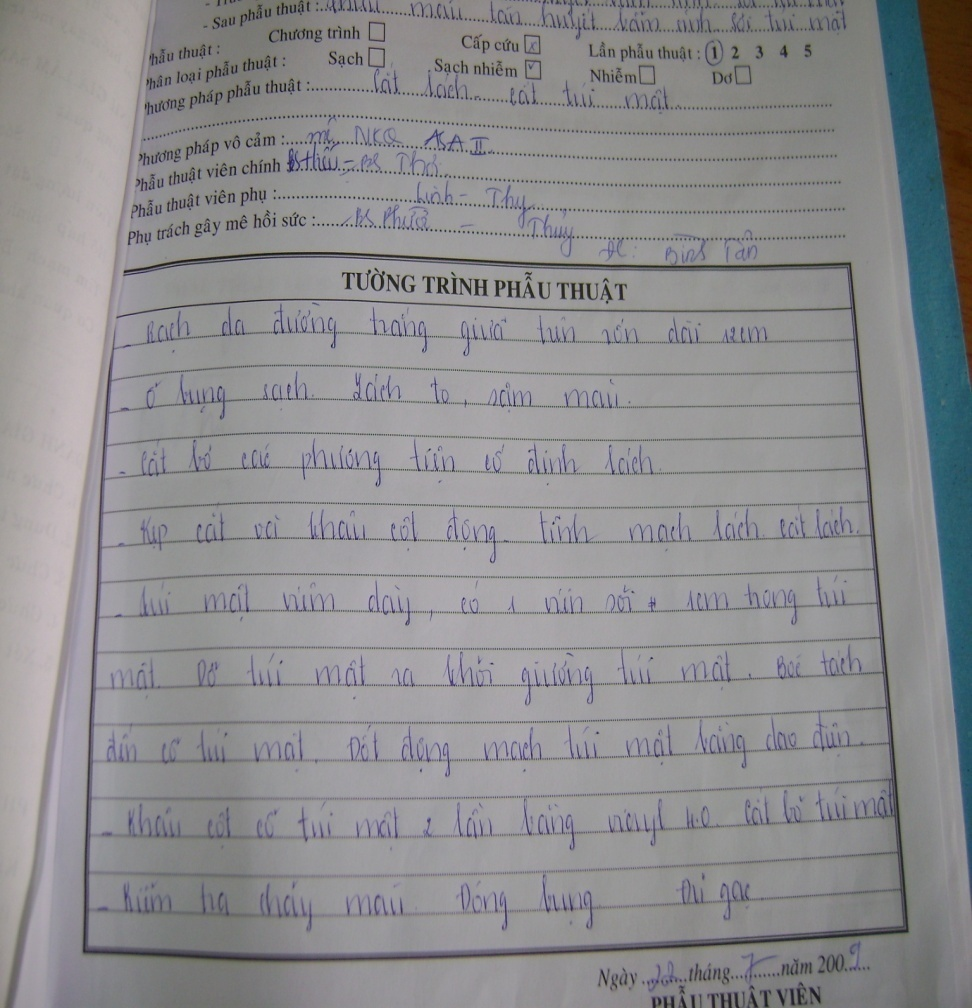 - Sau phẫu thuật : thiếu máu tán huyết bẩm sinh sỏi túi mật
Phẫu thuật : Chương trình ☐ Cấp cứu ☒ Lần phẫu thuật : ① 2 3 4 5
Phân loại phẫu thuật : Sạch ☐ Sạch nhiễm ☑ Nhiễm ☐ Dơ ☐
Phương pháp phẫu thuật : Cắt lách. cắt túi mật.
Phương pháp vô cảm : mê NKQ ASA II
Phẫu thuật viên chính BS Hiếu = BS Thơ
Phẫu thuật viên phụ : Linh - Thy
Phụ trách gây mê hồi sức : BS Phước - Thủy
Tân
TƯỜNG TRÌNH PHẪU THUẬT
- Rạch da đường trắng giữa trên rốn dài 12cm
- Ổ bụng sạch. Lách to, sậm màu.
- Cắt bỏ các phương tiện cố định lách.
- Kẹp cắt và khâu cột động tĩnh mạch lách. cắt lách.
- Túi mật viêm dày, có 1 viên sỏi 1cm trong túi
mật. Dở túi mật ra khỏi giường túi mật. Bóc tách
đến cổ túi mật. Đốt động mạch túi mật bằng dao điện.
- Khâu cột cổ túi mật 2 lần bằng 4.0. Cắt bỏ túi mật
- Kiểm tra chảy máu. Đóng bụng. Đủ gạc
Ngày 22 tháng 7 năm 2009
PHẪU THUẬT VIÊN